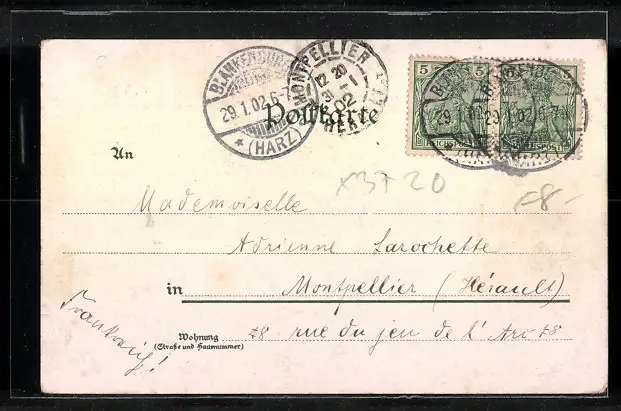 BLANKENBURG
29.1.02 6-7
* (HARZ)
MONTPELLIER
12 20
31 - 1
02
HERAULT
5 5
REICHSPOST REICHSPOST
29.1.02 6-7
Postkarte
An
X3720
€8-
Mademoiselle
Adrienne Larochette
in Montpellier (Hérault)
Frankreich!
Wohnung 78 rue du jeu de l'Arc 78
(Straße und Hausnummer)